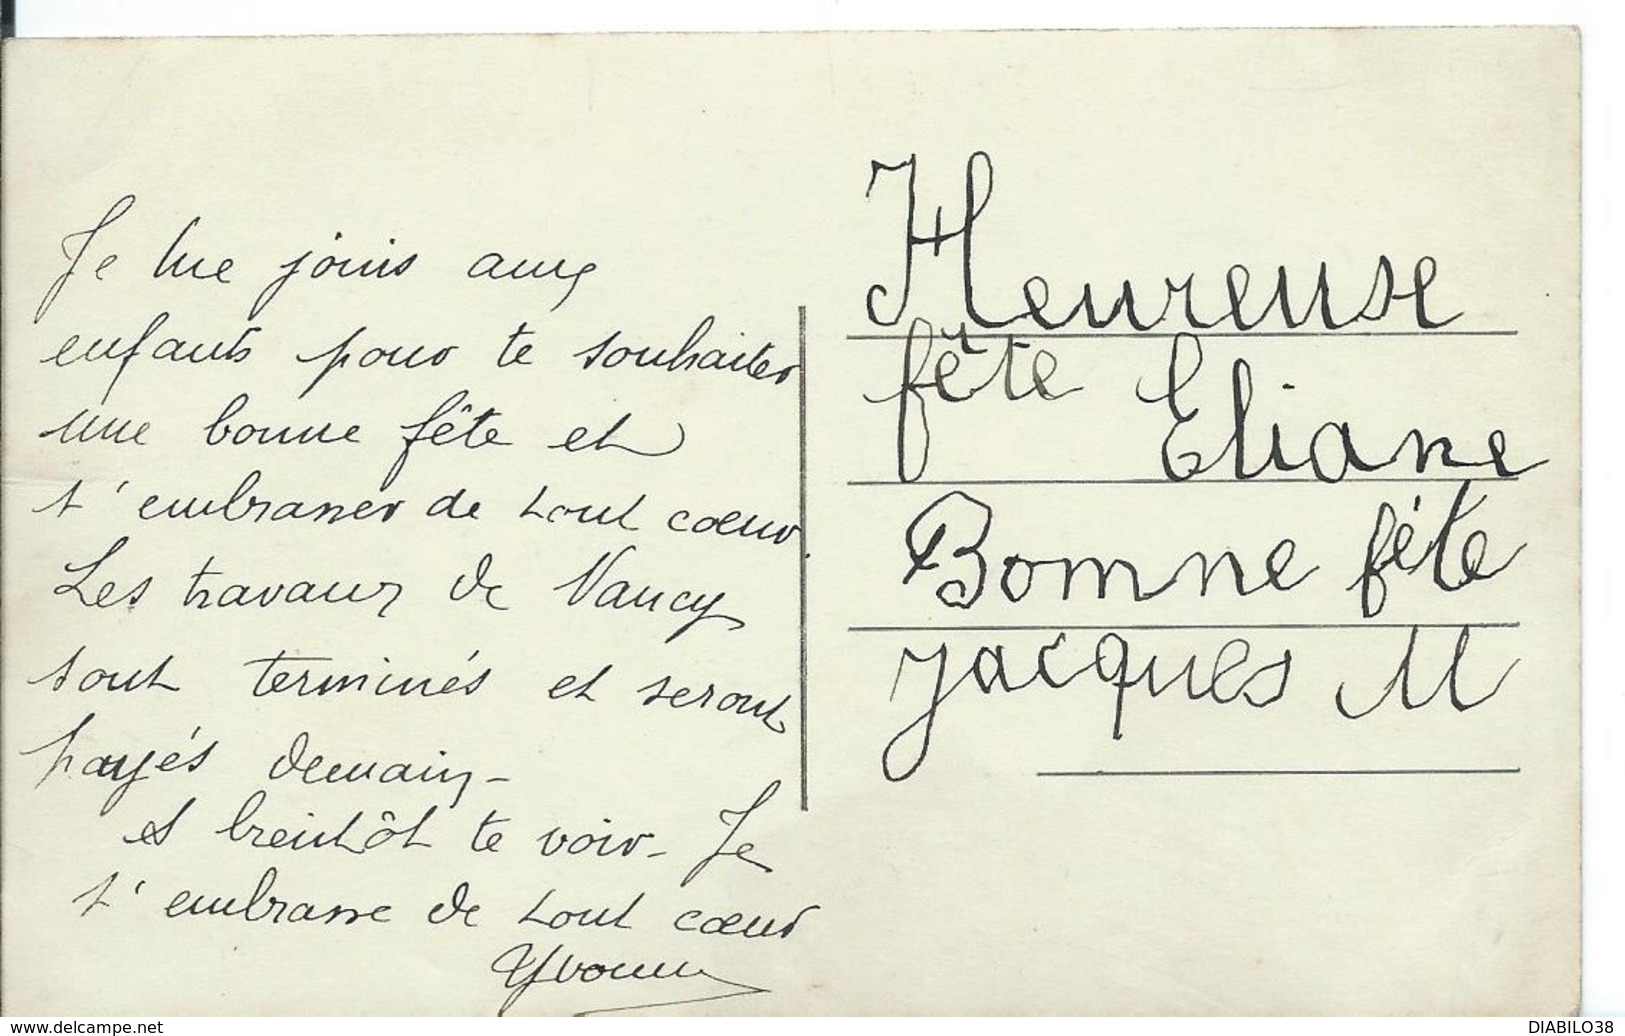 Je me joins aux
enfants pour te souhaiter
une bonne fête et
t'embrasser de tout coeur.
Les travaux de Nancy
sont terminés et seront
payés demain -
A bientôt te voir - Je
t'embrasse de tout coeur
Yvonne
Heureuse
fête Eliane
Bonne fête
Jacques M
DIABILO38
www.delcampe.net